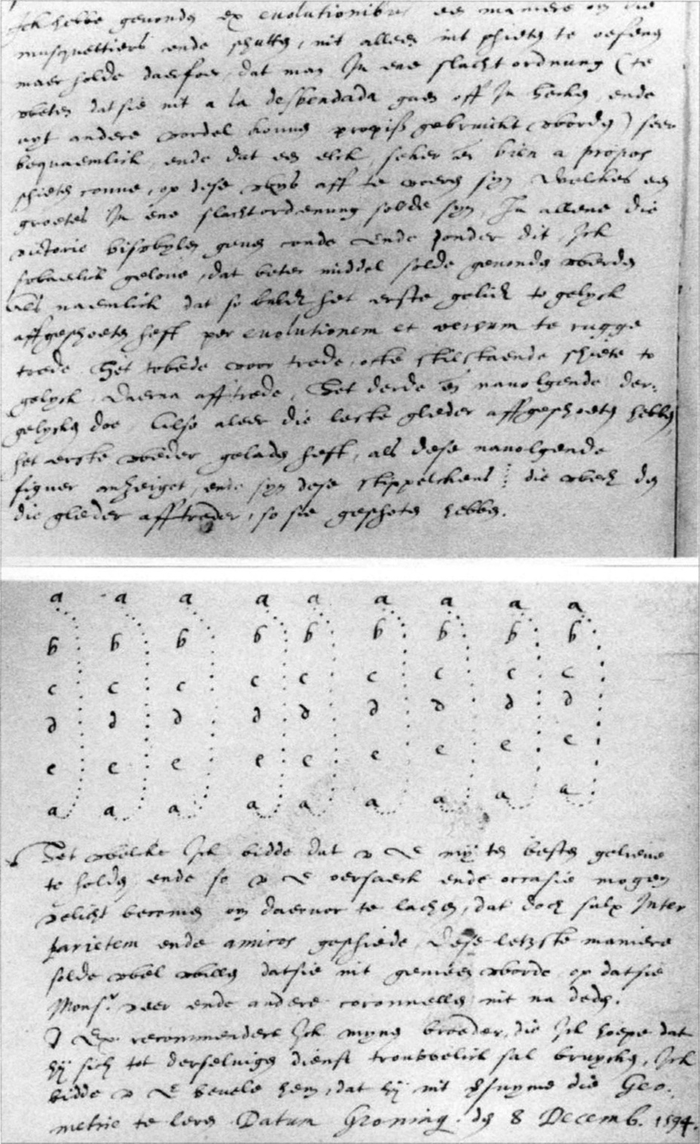 Ick hebbe gevonden ex evolutionibus een maniere om die
musquettiers ende schutten, nit alleen int schieten te oefenen
maer holde daerfoer, dat men in ene slachtordnung (te
weten datsie nit a la desbendada gaen off in hecken ende
uyt andere vordel konnen propiss gebruickt worden) seer
bequaemlick, ende dat een elck, seker en bien a propos
schieten conne, op dese wys aff te voeren syn, welckes een
grootes in ene slachtordenung solde syn, in allene die
victorie biswylen geven conde ende sonder dit, ick
qualick gelove, dat beter middel solde gevonden werden
als naemlick dat so baldt het erste gelidt to gelyck
affgeschoeten heft per evolutionem et versum te rugge
trede. Het tweede voor trede, ofte stilstaende schiete to
gelyck, daerna afftrede, Het derde en navolgende der-
gelycken doe. Also aleer die leste glieder affgeschoeten hebben,
het erste weder geladen heft, als dese navolgende
figuer anzeiget, ende syn dese stippelckens ⋮ die wech den
die glieder afftreden, so sie geschoten hebben.
a a a a a a a a a
b b b b b b b b
c c c c c c c c c
d d d d d d d d d
e e e e e e e e
a a a a a a a a a
Het welcke ick bidde dat v L E my ten besten gelieve
te holden ende so v L E oersaeck ende occasie mogen
velicht becomen om daervor te lachen, dat doch sulx inter
parietem ende amicos geschiede. Dese letzste maniere
solde wel willen datsie nit gemeen worde, op datsie
Monsr. veer ende andere coronnellen nit na deden.
V Ex. recommendere ick mynen broeder, die ick hoepe dat
hy sich tot derselvigen dienst trouwelick sal bruycken, ick
bidde v L E bevele hem, dat hy nit versuyme die Geo-
metrie te leren Datum Groning. den 8 Decemb. 1594.